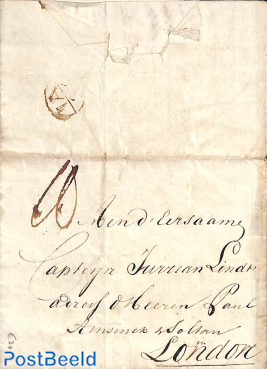 Mend Eersaame
Capteyn Jurriaan Linds
adres d Heeren Paul
Amsinck & Soltau
London
PostBeeld